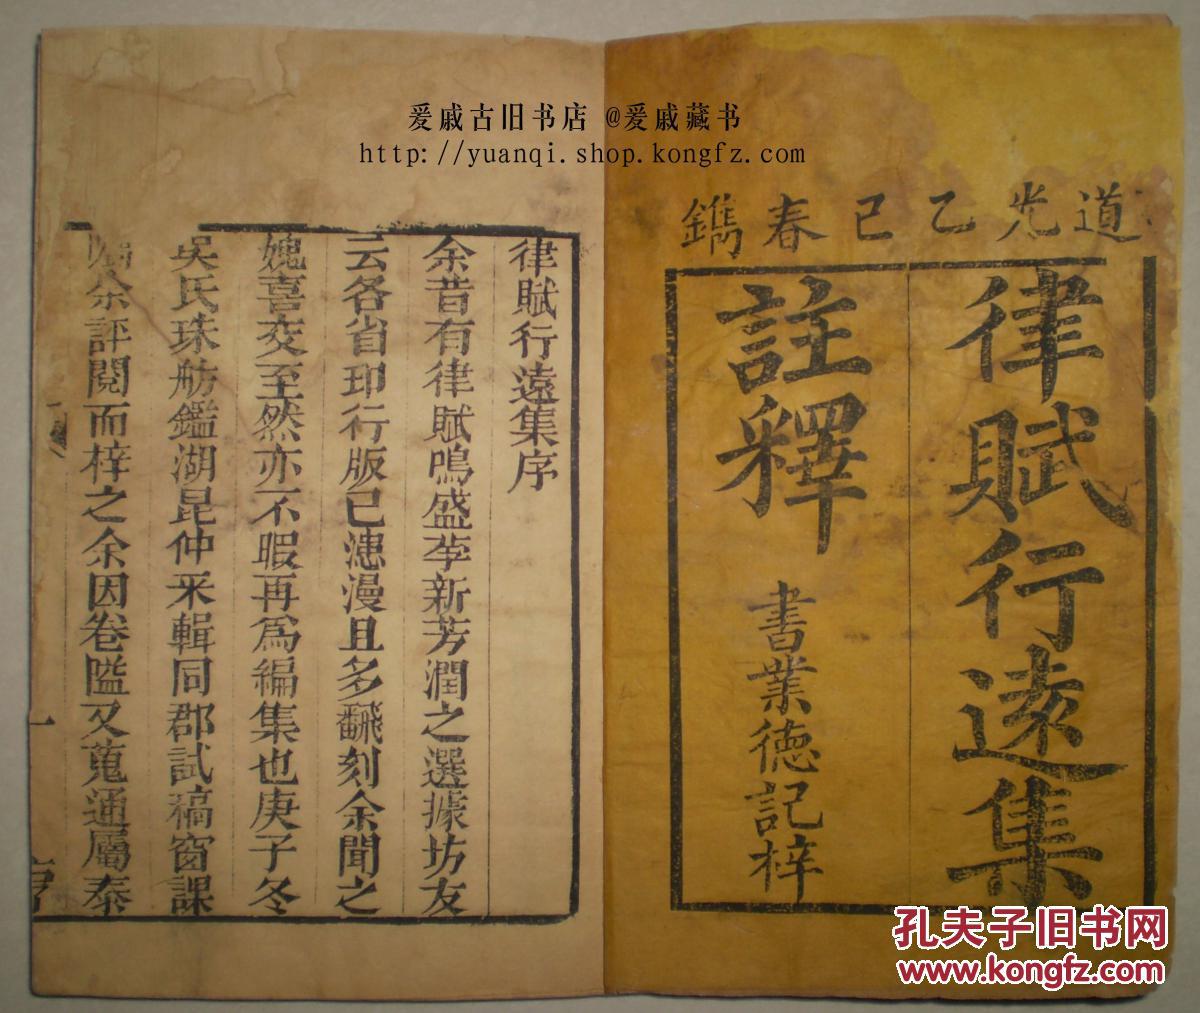 爰戚古旧书店 @爰戚藏书
http://yuanqi.shop.kongfz.com
道光乙巳春鐫
律賦行遠集
註釋
書業德記梓
律賦行遠集序
余昔有律賦鳴盛莘新芳潤之選據坊友
云各省印行版已漶漫且多翻刻余聞之
媿喜交至然亦不暇再為編集也庚子冬
吳氏珠舫鑑湖昆仲采輯同郡試稿窗課
屬余評閱而梓之余因卷隘又蒐通屬泰
序
一
孔夫子旧书网
www.kongfz.com